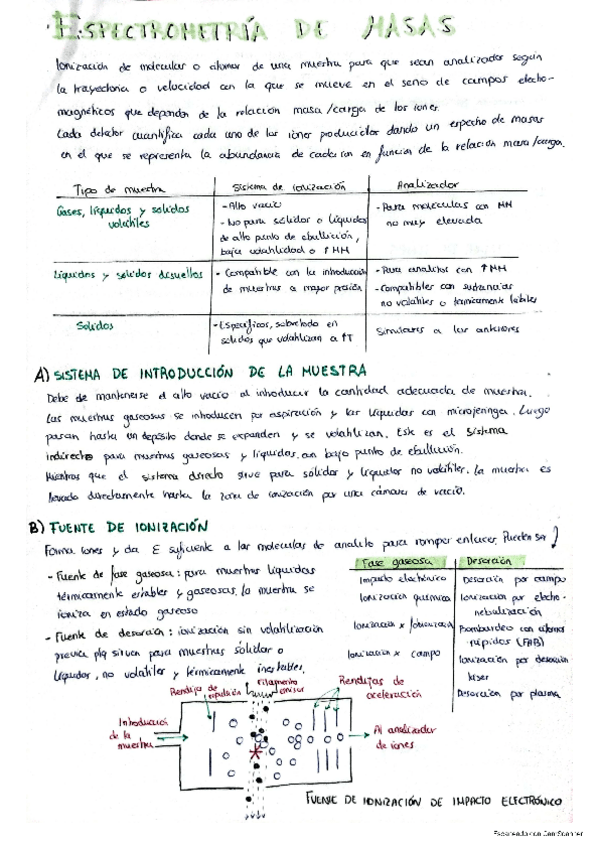 ESPECTROMETRÍA DE MASAS
Ionización de moléculas o átomos de una muestra para que sean analizados según
la trayectoria o velocidad con la que se mueve en el seno de campos electro-
magnéticos que dependen de la relación masa/carga de los iones.
Cada detector cuantifica cada uno de los iones producidos dando un espectro de masas
en el que se representa la abundancia de cada ion en función de la relación masa/carga.
Tipo de muestra Sistema de ionización Analizador
Gases, líquidos y sólidos volátiles
- Alto vacío
- No para sólidos o líquidos
de alto punto de ebullición,
baja volatilidad o ↑MM
- Para moléculas con MM
no muy elevada
Líquidos y sólidos disueltos
- Compatible con la introducción
de muestras a mayor presión
- Para analitos con ↑MM
- Compatibles con sustancias
no volátiles o térmicamente lábiles
Sólidos
- Específicos, sobretodo en
sólidos que volatilizan a ↑T
Similares a los anteriores
A) SISTEMA DE INTRODUCCIÓN DE LA MUESTRA
Debe de mantenerse el alto vacío al introducir la cantidad adecuada de muestra.
Las muestras gaseosas se introducen por aspiración y las líquidas con microjeringa. Luego
pasan hasta un depósito donde se expanden y se volatilizan. Este es el sistema
indirecto para muestras gaseosas y líquidas con bajo punto de ebullición.
Mientras que el sistema directo sirve para sólidos y líquidos no volátiles. La muestra es
llevada directamente hasta la zona de ionización por una cámara de vacío.
B) FUENTE DE IONIZACIÓN
Forma iones y da E suficiente a las moléculas de analito para romper enlaces. Pueden ser
- Fuente de fase gaseosa: para muestras líquidas
térmicamente estables y gaseosas, la muestra se
ioniza en estado gaseoso
- Fuente de desorción: ionización sin volatilización
previa plq sirven para muestras sólidas o
líquidas, no volátiles y térmicamente inestables.
Fase gaseosa Desorción
Impacto electrónico Desorción por campo
Ionización química Ionización por electro-
nebulización
Ionización x fotoionización Bombardeo con átomos
rápidos (FAB)
Ionización x campo Ionización por desorción
láser
Desorción por plasma
Rendija de repulsión
Filamento emisor
Rendijas de aceleración
Introducción
de la
muestra
Al analizador
de iones
FUENTE DE IONIZACIÓN DE IMPACTO ELECTRÓNICO
Escaneado con CamScanner